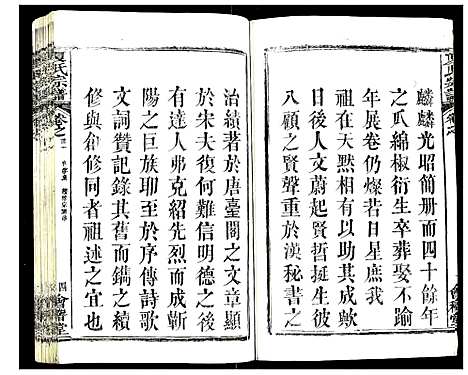 麟麟光昭簡册而四十餘年
之瓜綿椒衍生卒葬娶不踰
年展卷仍燦若日星此周賴
祖在天黙相有以成歟無亦
日後人文蔚起賢哲挺生彼
八顧之賢聲重於漢秘書之
治績著於唐臺閣之文章顯
於宋夫復何難信明德之後
有達人弗克紹先烈而成蘄
陽之巨族耶至於序傳詩歌
文詞贊記錄其舊而鐫之續
修與創修同者祖述之宜也
夏氏宗譜
卷之
四
會稽堂